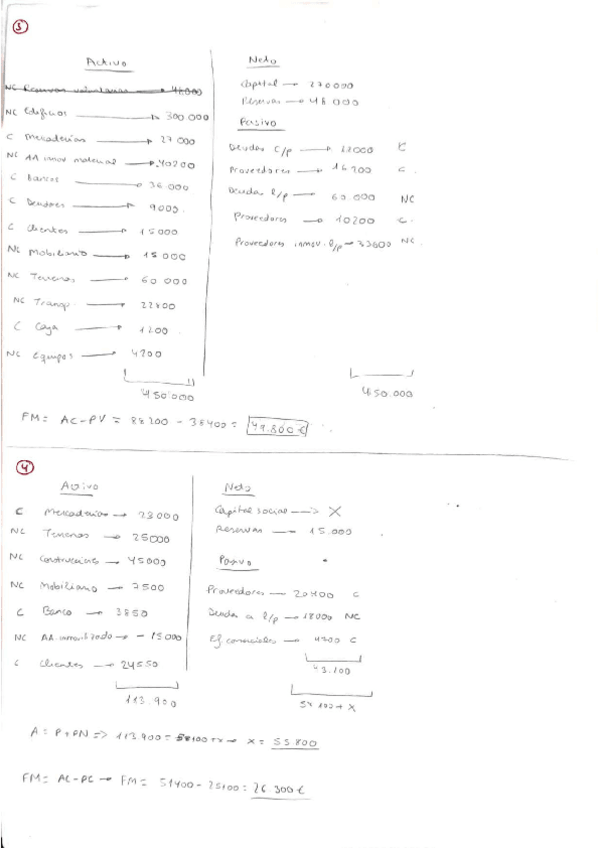 3
Activo
NC Reservas voluntarias → 48.000
NC Edificios → 300.000
C Mercaderías → 27 000
NC AA inmov material → -40200
C Bancos → 36.000
C Deudores → 9000.
C Clientes → 15000
NC Mobiliario → 15 000
NC Terrenos → 60 000
NC Transp. → 22800
C Caja → 1200
NC Equipos → 4200
450.000
Neto
Capital → 270000
Reservas → 48 000
Pasivo
Deudas c/p → 12000 C
Proveedores → 16200 C.
Deudas l/p → 60 000 NC
Proveedores → 10200 C.
Proveedores inmov. l/p → 33600 NC.
450.000
FM = AC-PV = 88200 - 38400 = 49.800 €
4
Activo
C Mercaderías → 23000
NC Terrenos → 25000
NC Construcciones → 45000
NC Mobiliario → 7500
C Banco → 3850
NC AA inmovilizado → - 15000
C Clientes → 24550
113.900
Neto
Capital social → X
Reservas → 15.000
Pasivo
Proveedores → 20400 C
Deudas a l/p → 18000 NC
Ef. comerciales → 4700 C
43.100
58 100 + X
A = P+PN => 113.900 = 58100+x → X = 55800
FM = AC-PC → FM = 51400 - 25100 = 26.300 €